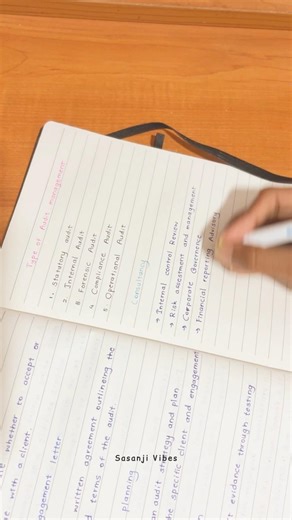 Type of Audit engagement
1. Statutory audit
2. Internal Audit
3 Forensic Audit
4 Compliance Audit
5 Operational Audit
Consulting
→ Internal control Review
→ Risk assessment and management
→ Corporate Governence
→ Financial reporting Advisory
whether to accept or
with a client
engagement letter
written agreement outlineing the
terms of the audit
planning
an audit strategy and plan
the specific client and engagement
evidence through testing
Sasanji Vibes